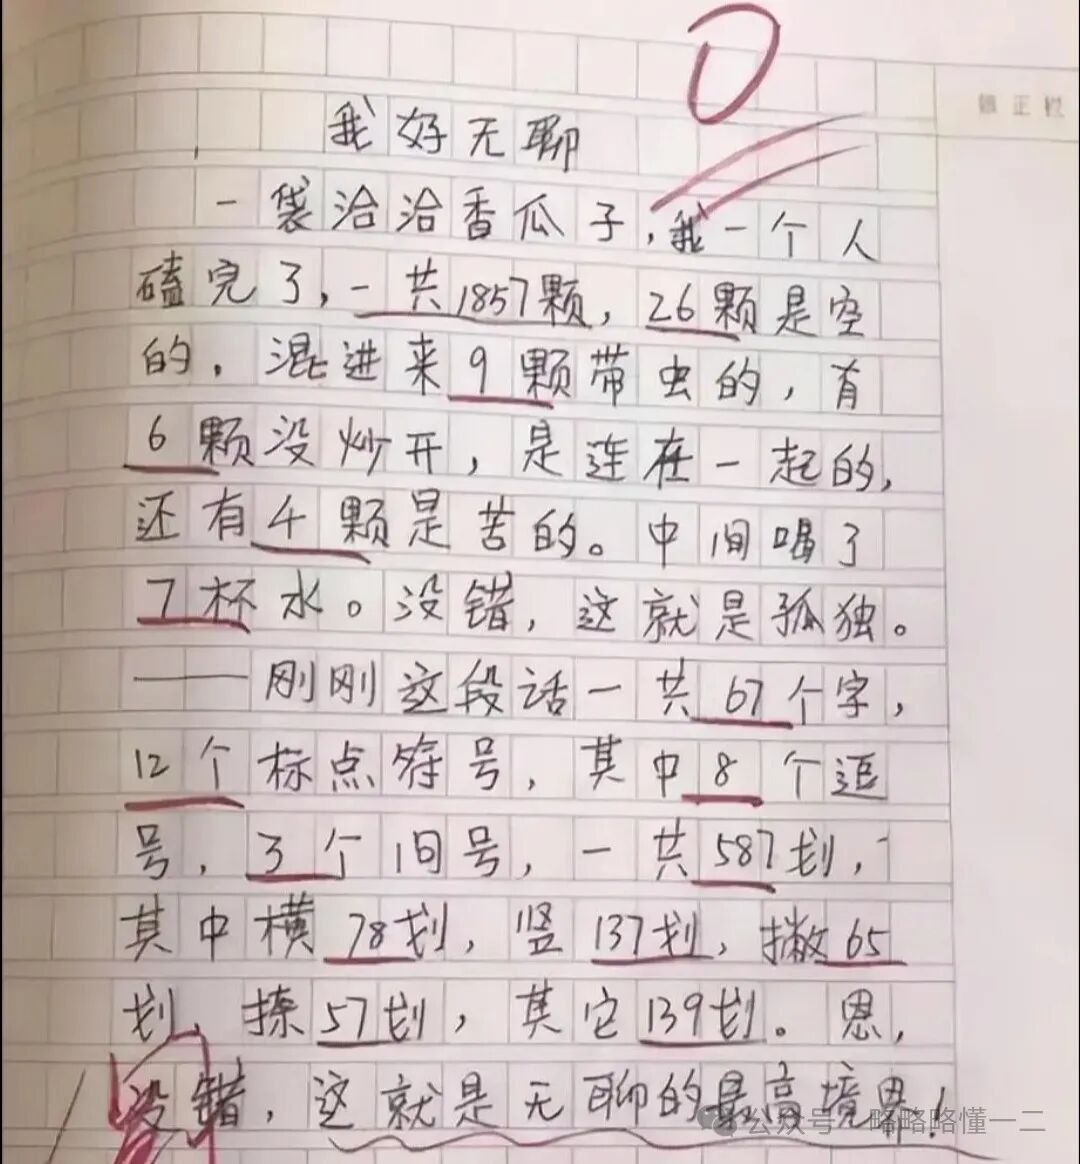 0
修正栏
我好无聊
一袋洽洽香瓜子,我一个人
磕完了,一共1857颗,26颗是空
的,混进来9颗带虫的,有
6颗没炒开,是连在一起的,
还有4颗是苦的。中间喝了
7杯水。没错,这就是孤独。
——刚刚这段话一共67个字,
12个标点符号,其中8个逗
号,3个问号,一共587划,
其中横78划,竖137划,撇65
划,捺57划,其它139划。恩,
没错,这就是无聊的最高境界!
公众号 略略略懂一二